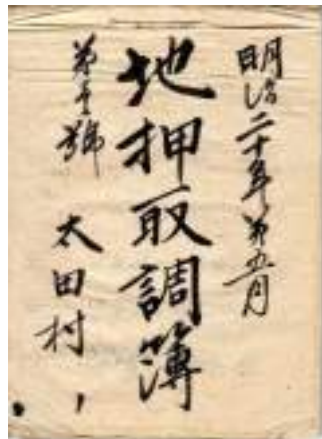 明治二十年第五月
地押取調簿
第壱號
太田村